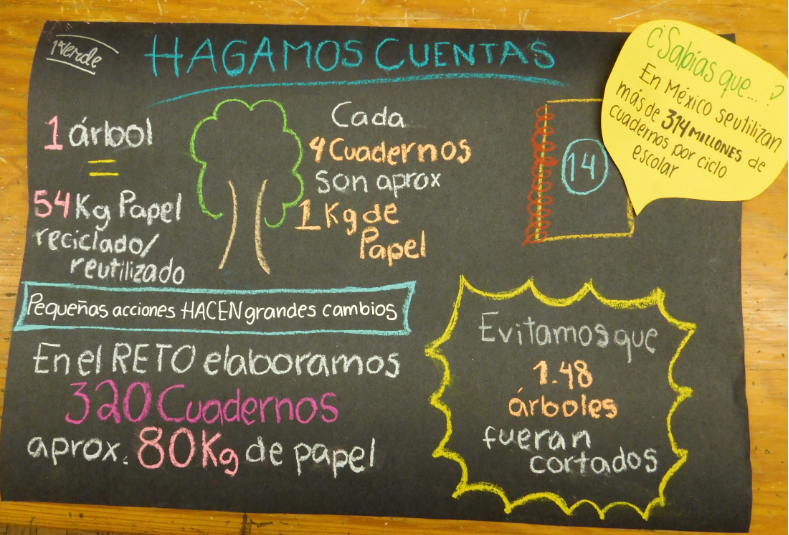 1º verde
HAGAMOS CUENTAS
1 árbol
=
54 Kg Papel
reciclado/
reutilizado
Cada
4 Cuadernos
son aprox
1 Kg de
Papel
14
¿Sabías que...?
En México se utilizan
más de 314 MILLONES de
cuadernos por ciclo
escolar
Pequeñas acciones HACEN grandes cambios
En el RETO elaboramos
320 Cuadernos
aprox. 80 Kg de papel
Evitamos que
1.48
árboles
fueran
cortados